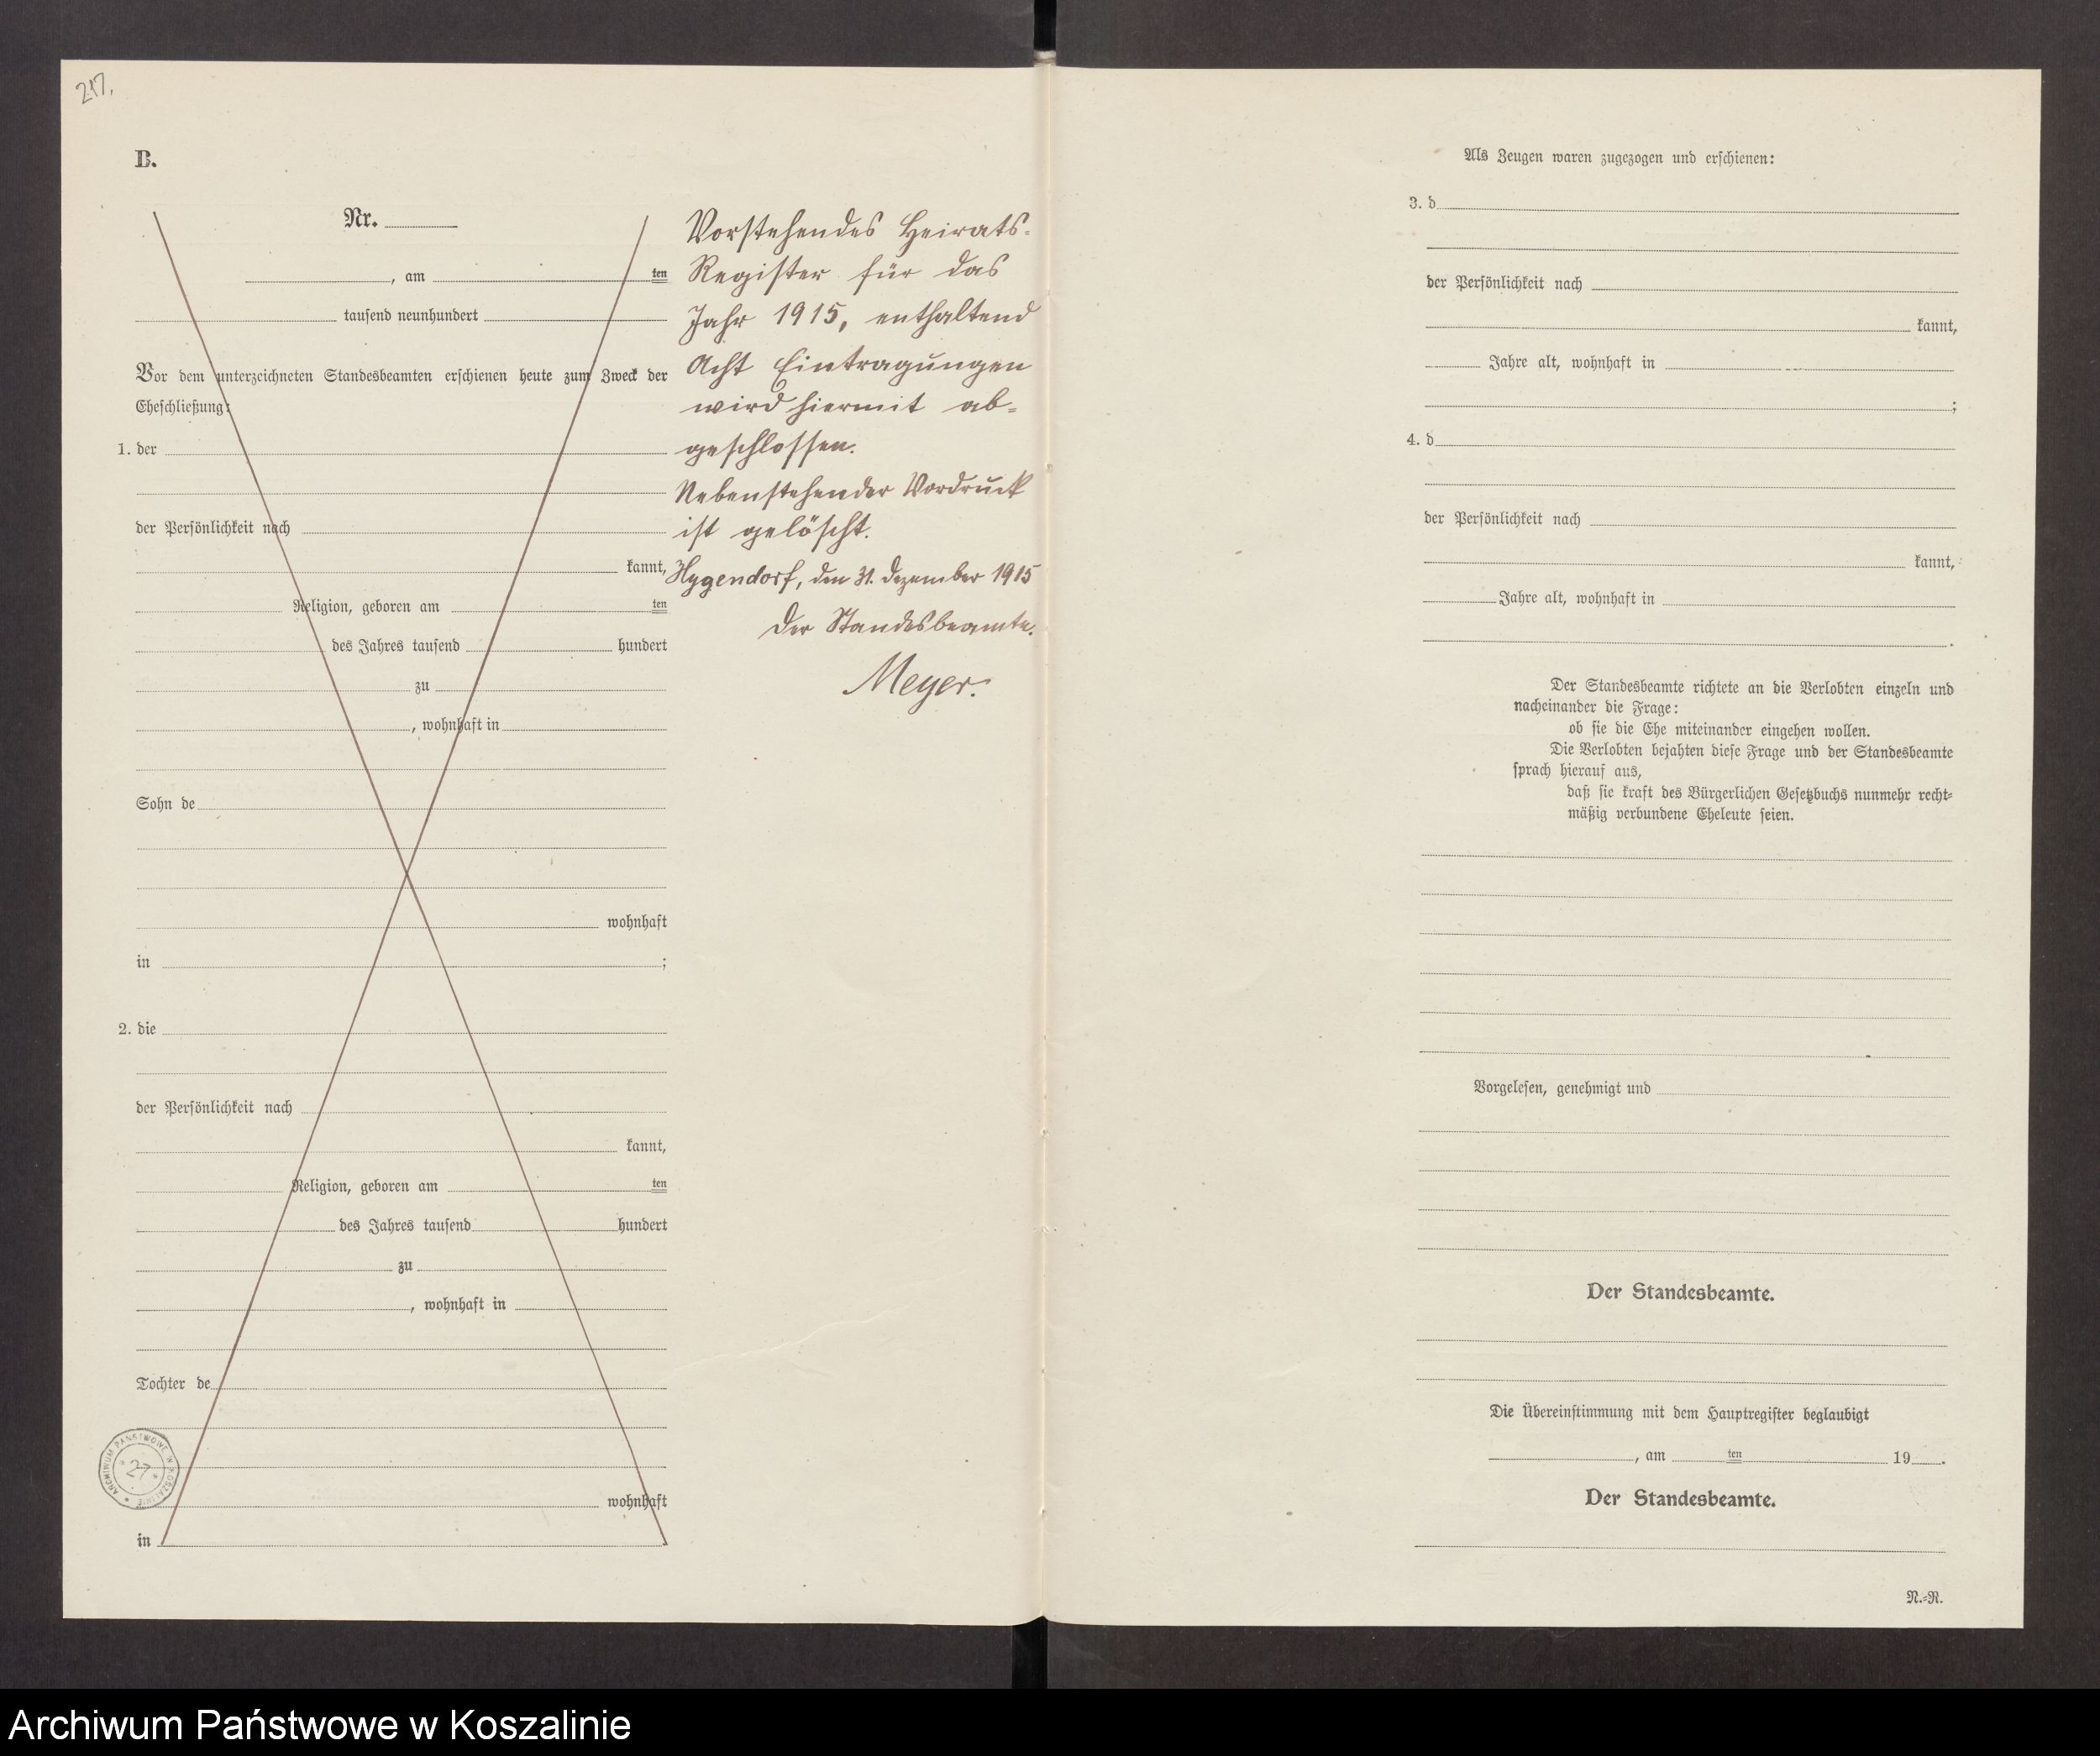 217.
B.
Nr.
, am ten
tausend neunhundert
Vor dem unterzeichneten Standesbeamten erschienen heute zum Zweck der
Eheschließung:
1. der
der Persönlichkeit nach
kannt,
Religion, geboren am ten
des Jahres tausend hundert
zu
, wohnhaft in
Sohn de
wohnhaft
in ;
2. die
der Persönlichkeit nach
kannt,
Religion, geboren am ten
des Jahres tausend hundert
zu
, wohnhaft in
Tochter de
wohnhaft
in
ARCHIWUM PAŃSTWOWE W KOSZALINIE
27
Vorstehendes Heirats-
Register für das
Jahr 1915, enthaltend
Acht Eintragungen
wird hiermit ab-
geschlossen.
Nebenstehender Vordruck
ist gelöscht.
den 31. Dezember 1915
Der Standesbeamte.
Meyer.
Als Zeugen waren zugezogen und erschienen:
3. d
der Persönlichkeit nach
kannt,
Jahre alt, wohnhaft in
;
4. d
der Persönlichkeit nach
kannt,
Jahre alt, wohnhaft in
.
Der Standesbeamte richtete an die Verlobten einzeln und
nacheinander die Frage:
ob sie die Ehe miteinander eingehen wollen.
Die Verlobten bejahten diese Frage und der Standesbeamte
sprach hierauf aus,
daß sie kraft des Bürgerlichen Gesetzbuchs nunmehr recht-
mäßig verbundene Eheleute seien.
Vorgelesen, genehmigt und
Der Standesbeamte.
Die Übereinstimmung mit dem Hauptregister beglaubigt
, am ten 19 .
Der Standesbeamte.
N.-R.
Archiwum Państwowe w Koszalinie